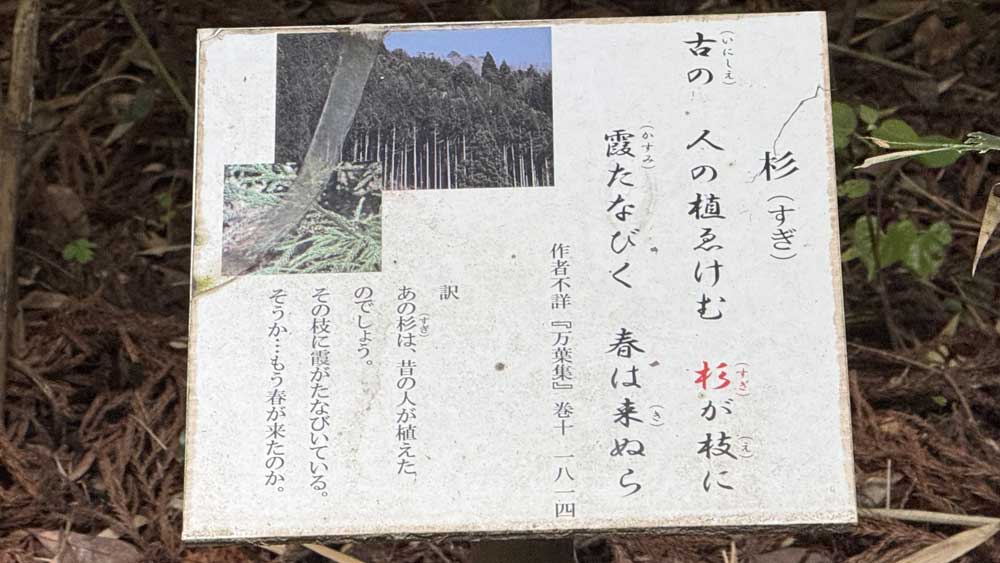 杉（すぎ）
古の（いにしえ）　人の植ゑけむ　杉（すぎ）が枝（え）に
霞（かすみ）たなびく　春は来（き）ぬら
作者不詳『万葉集』巻十　一八一四
訳
あの杉（すぎ）は、昔の人が植えた
のでしょう。
その枝に霞がたなびいている。
そうか…もう春が来たのか。